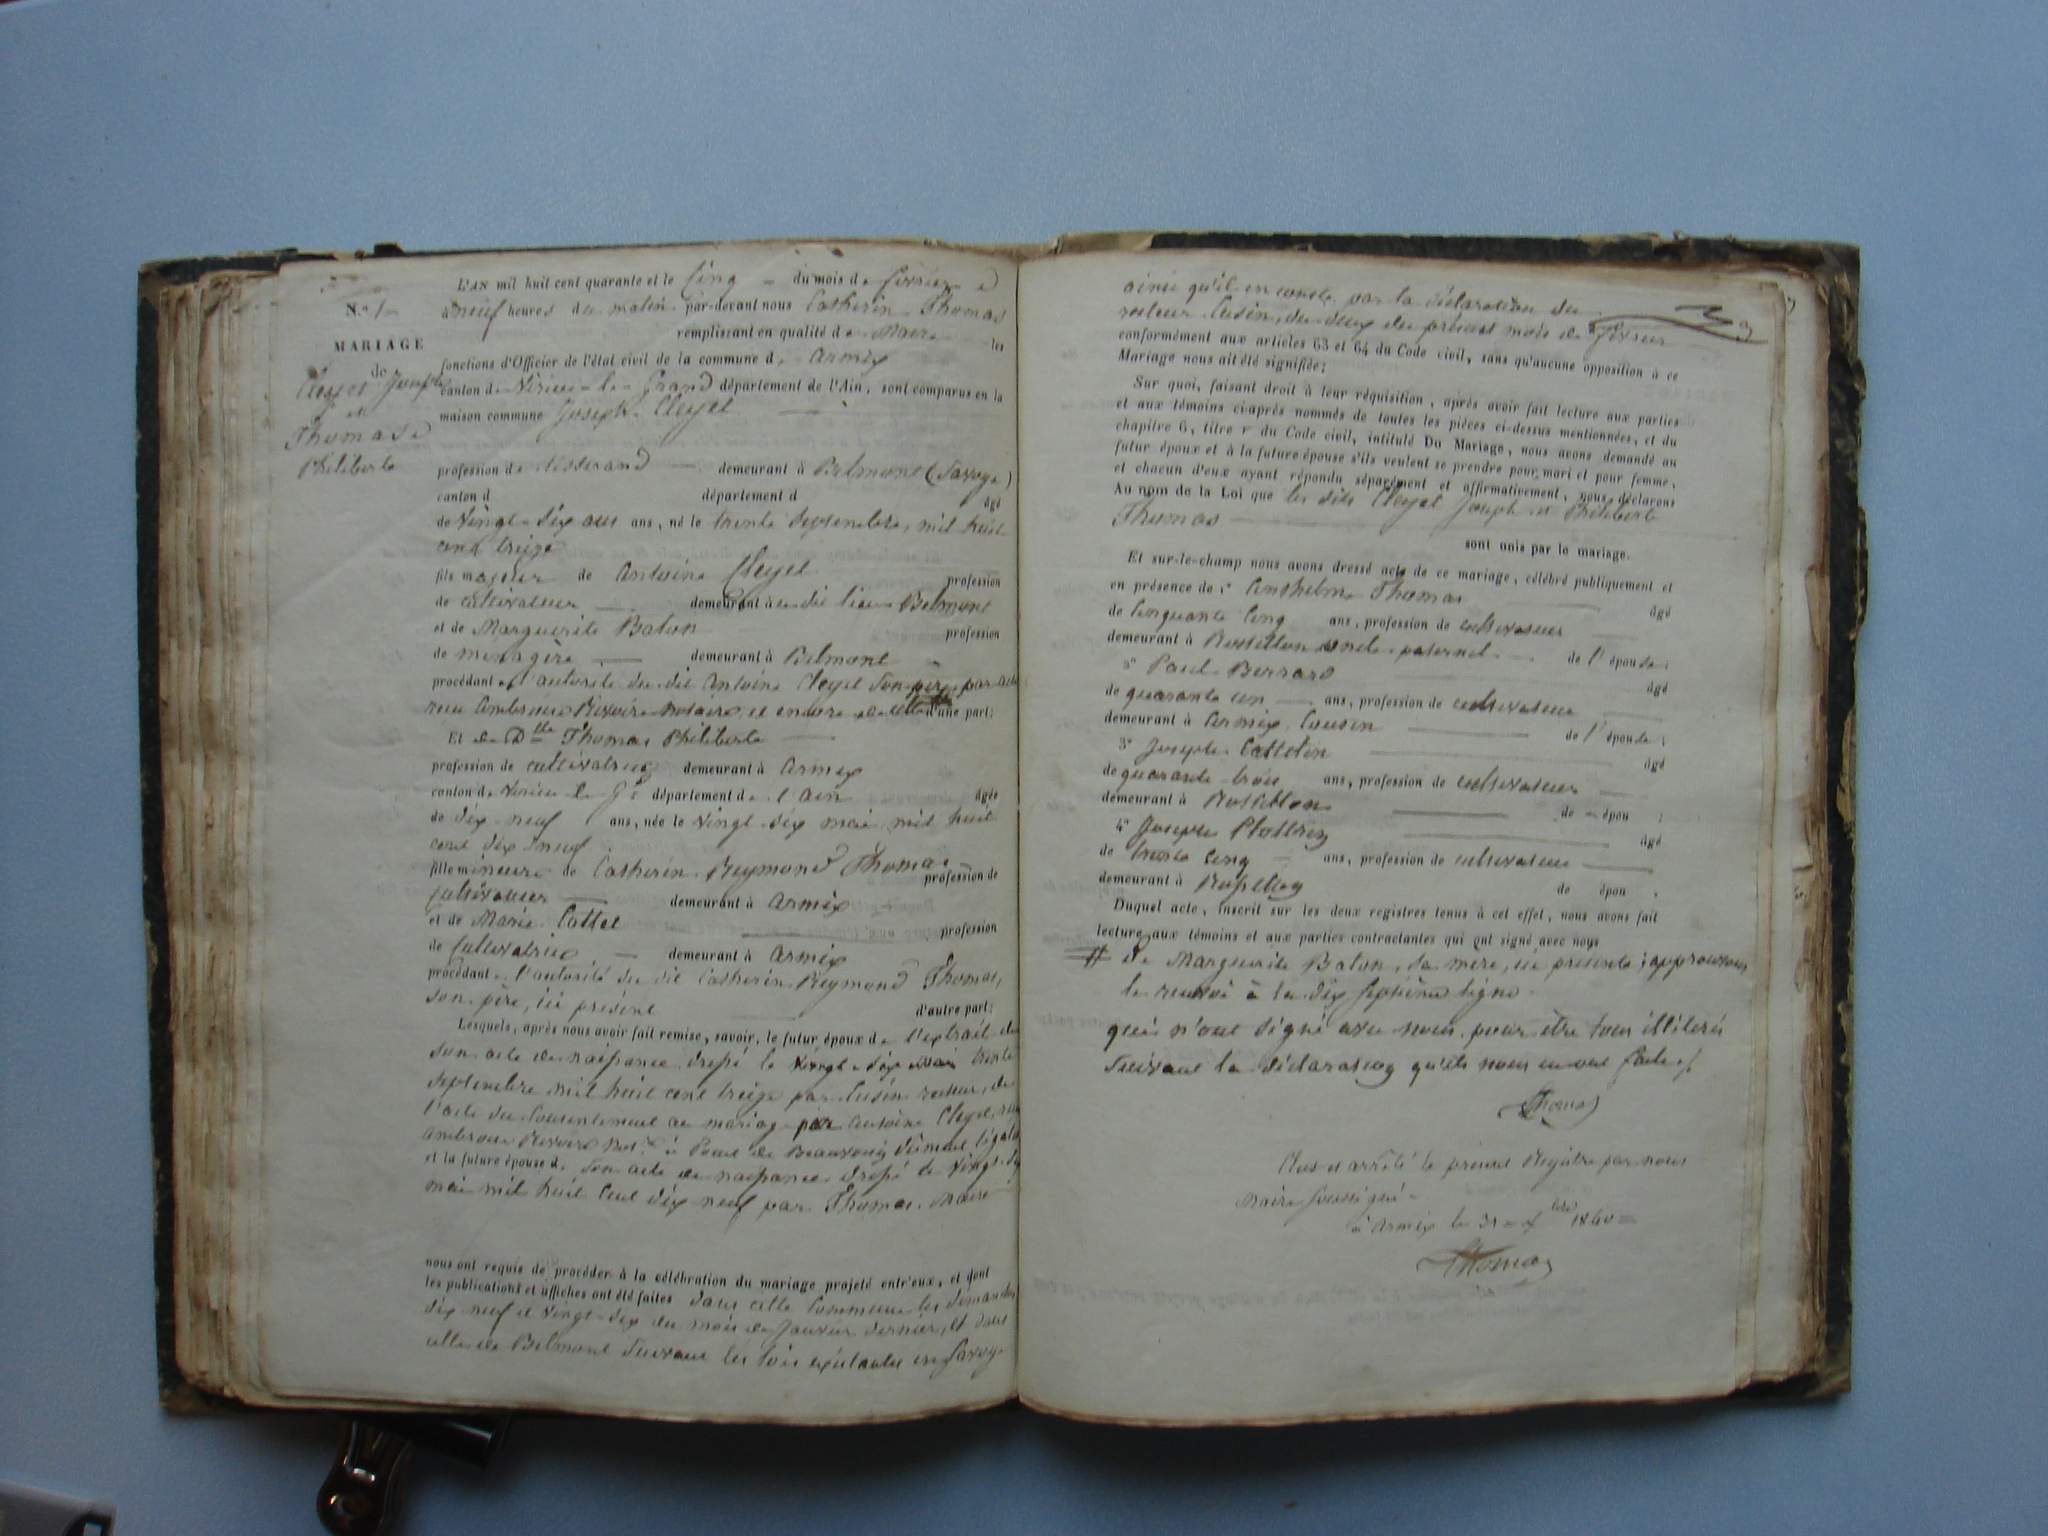 N.o 1
MARIAGE
de
Cleyet Joseph
et
Thomas
Philiberte
L'AN mil huit cent quarante et le cinq du mois de février
à neuf heures du matin par-devant nous Catherin Thomas
remplissant en qualité de Maire les
fonctions d'Officier de l'état civil de la commune d. Armix
canton de Virieu-le-Grand département de l'Ain, sont comparus en la
maison commune Joseph Cleyet
profession de tisserand demeurant à Belmont (Savoye)
canton d département d âgé
de vingt-six ans ans, né le trente septembre, mil huit
cent treize
fils majeur de Antoine Cleyet profession
de cultivateur demeurant au dit lieu Belmont
et de Marguerite Baton profession
de ménagère demeurant à Belmont
procédant de l'autorité du dit Antoine Cleyet son père par acte
reçu Notaire, et encore de celle d'une part;
Et de Dlle Thomas Philiberte
profession de cultivatrice demeurant à Armix
canton de Virieu le Gd département de l'Ain âgée
de dix-neuf ans, née le vingt-six mai mil huit
cent dix neuf
fille mineure de Catherin Reymond Thomas profession de
cultivateur demeurant à Armix
et de Marie Cottet profession
de Cultivatrice demeurant à Armix
procédant de l'autorité du dit Catherin Reymond Thomas,
son père, ici présent d'autre part;
Lesquels, après nous avoir fait remise, savoir, le futur époux de l'extrait de
son acte de naissance dressé le trente
septembre mil huit cent treize par Cusin recteur, de
l'acte du consentement au mariage par Antoine Cleyet, reçu
not.re à Pont de Beauvoisin dûment légalisé
et la future épouse de son acte de naissance dressé le vingt-six
mai mil huit cent dix neuf par Thomas, Maire
nous ont requis de procéder à la célébration du mariage projeté entr'eux, et dont
les publications et affiches ont été faites dans cette commune les dimanches
dix neuf et vingt-six du mois de janvier dernier, et dans
celle de Belmont suivant les lois existantes en Savoye
3
ainsi qu'il en conste par la déclaration du
recteur Cusin, du deux du présent mois de février
conformément aux articles 63 et 64 du Code civil, sans qu'aucune opposition à ce
Mariage nous ait été signifiée;
Sur quoi, faisant droit à leur réquisition, après avoir fait lecture aux parties
et aux témoins ci-après nommés de toutes les pièces ci-dessus mentionnées, et du
chapitre 6, titre v du Code civil, intitulé Du Mariage, nous avons demandé au
futur époux et à la future épouse s'ils veulent se prendre pour mari et pour femme,
et chacun d'eux ayant répondu séparément et affirmativement, nous déclarons
Au nom de la Loi que les dits Cleyet Joseph et Philiberte
Thomas
sont unis par le mariage.
Et sur-le-champ nous avons dressé acte de ce mariage, célébré publiquement et
en présence de 1° Anthelme Thomas âgé
de cinquante cinq ans, profession de cultivateur
demeurant à Rossillon oncle paternel de l'épouse;
2° Paul Bernard âgé
de quarante un ans, profession de cultivateur
demeurant à Armix Cousin de l'épouse;
3° Joseph Cattelin âgé
de quarante trois ans, profession de cultivateur
demeurant à Rossillon de épou ;
4° Joseph âgé
de trente cinq ans, profession de cultivateur
demeurant à Rossillon de épou .
Duquel acte, inscrit sur les deux registres tenus à cet effet, nous avons fait
lecture aux témoins et aux parties contractantes qui ont signé avec nous
# de Marguerite Baton, sa mère, ici présente; approuvons
le renvoi à la dix septième ligne.
qui n'ont signé avec nous pour être tous illitérés
suivant la déclaration qu'ils nous en ont faite./.
Thomas
Clos et arrêté le présent Registre par nous
Maire soussigné
à Armix le 31 Xbre 1840
Thomas